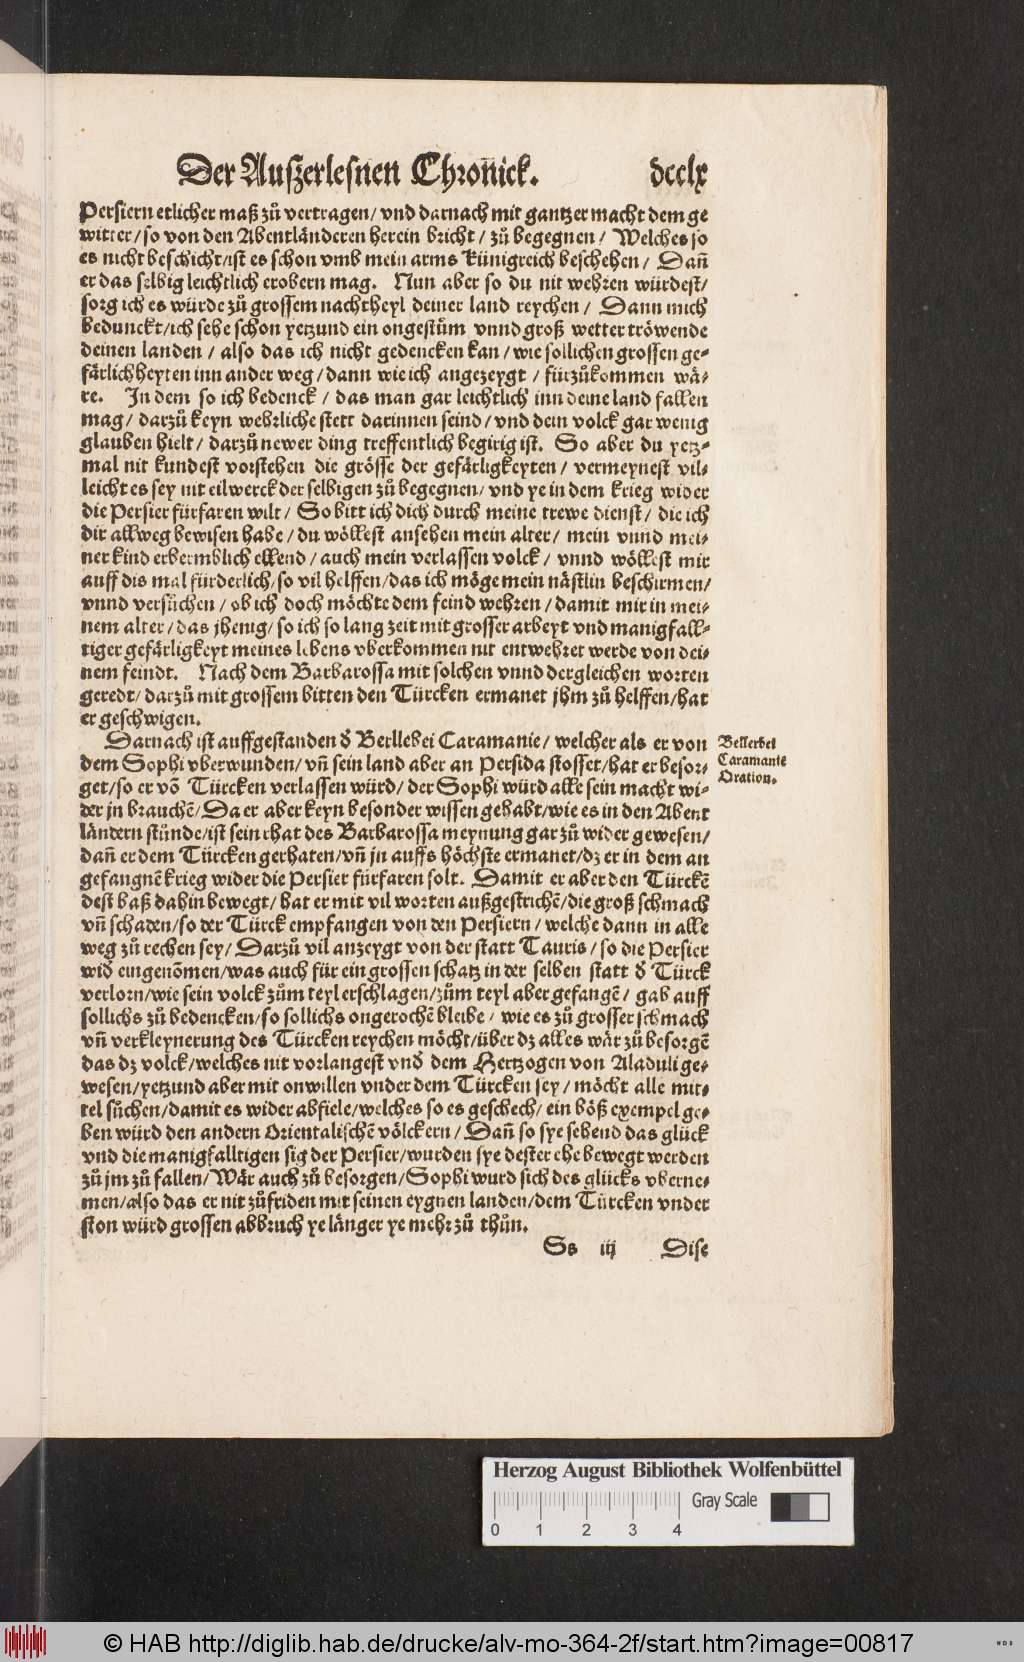 Der Auszerlesnen Chronick. dcclx
Persiern etlicher maß zů vertragen/ vnd darnach mit gantzer macht dem ge
witter/ so von den Abentländeren herein bricht/ zů begegnen/ Welches so
es nicht beschicht/ ist es schon vmb mein arms Künigreich beschehen/ Dañ
er das selbig leichtlich erobern mag. Nun aber so du nit wehren würdest/
sorg ich es würde zů grossem nachtheyl deiner land reychen/ Dann mich
bedunckt/ ich sehe schon yetzund ein ongestům vnnd groß wetter tröwende
deinen landen/ also das ich nicht gedencken kan/ wie sollichen grossen ge-
färlichheyten inn ander weg/ dann wie ich angezeygt/ fürzůkommen wä-
re. In dem so ich bedenck/ das man gar leichtlich inn deine land fallen
mag/ darzů keyn wehrliche stett darinnen seind/ vnd dein volck gar wenig
glauben hielt/ darzů newer ding treffentlich begirig ist. So aber du yetz-
mal nit kundest vorstehen die grösse der gefärligkeyten/ vermeynest vil-
leicht es sey nit eilwerck der selbigen zů begegnen/ vnd ye in dem krieg wider
die Persier fürfaren wilt/ So bitt ich dich durch meine trewe dienst/ die ich
dir allweg bewisen habe/ du wöllest ansehen mein alter/ mein vnnd mei-
ner kind erbermblich ellend/ auch mein verlassen volck/ vnnd wöllest mir
auff dis mal fürderlich/ so vil helffen/ das ich möge mein nästlin beschirmen/
vnnd versůchen/ ob ich doch möchte dem feind wehren/ damit mir in mei-
nem alter/ das jhenig/ so ich so lang zeit mit grosser arbeyt vnd manigfall-
tiger gefärligkeyt meines lebens vberkommen nit entwehret werde von dei-
nem feindt. Nach dem Barbarossa mit solchen vnnd dergleichen worten
geredt/ darzů mit grossem bitten den Türcken ermanet jhm zů helffen/ hat
er geschwigen.
Darnach ist auffgestanden d̕ Berllebei Caramanie/ welcher als er von
Bellerbei
Caramanie
Oration.
dem Sophi vberwunden/ vñ sein land aber an Persida stosset/ hat er besor-
get/ so er võ Türcken verlassen würd/ der Sophi würd alle sein macht wi-
der jn brauchẽ/ Da er aber keyn besonder wissen gehabt/ wie es in den Abent
ländern stünde/ ist sein rhat des Barbarossa meynung gar zů wider gewesen/
dañ er dem Türcken gerhaten/ vñ jn auffs höchste ermanet/ dz er in dem an
gefangnẽ krieg wider die Persier fürfaren solt. Damit er aber den Türckẽ
dest baß dahin bewegt/ hat er mit vil worten außgestrichẽ/ die groß schmach
vñ schaden/ so der Türck empfangen von den Persiern/ welche dann in alle
weg zů rechen sey/ Darzů vil anzeygt von der statt Tauris/ so die Persier
wid̕ eingenõmen/ was auch für ein grossen schatz in der selben statt d̕ Türck
verlorn/ wie sein volck zům teyl erschlagen/ zům teyl aber gefangẽ/ gab auff
sollichs zů bedencken/ so sollichs ongerochẽ bleibe/ wie es zů grosser schmach
vñ verkleynerung des Türcken reychen möcht/ über dz alles wär zů besorgẽ
das dz volck/ welches nit vorlangest vnd̕ dem Hertzogen von Aladuli ge-
wesen/ yetzund aber mit onwillen vnder dem Türcken sey/ möcht alle mit-
tel sůchen/ damit es wider abfiele/ welches so es geschech/ ein böß exempel ge-
ben würd den andern Orientalischẽ völckern/ Dañ so sye sehend das glück
vnd die manigfalltigen sig der Persier/ wurden sye dester ehe bewegt werden
zů jm zů fallen/ Wär auch zů besorgen/ Sophi wurd sich des glücks vberne-
men/ also das er nit zůfriden mit seinen eygnen landen/ dem Türcken vnder
ston würd grossen abbruch ye länger ye mehr zů thůn.
Ss iij Dise
Herzog August Bibliothek Wolfenbüttel
Gray Scale
0 1 2 3 4
© HAB http://diglib.hab.de/drucke/alv-mo-364-2f/start.htm?image=00817